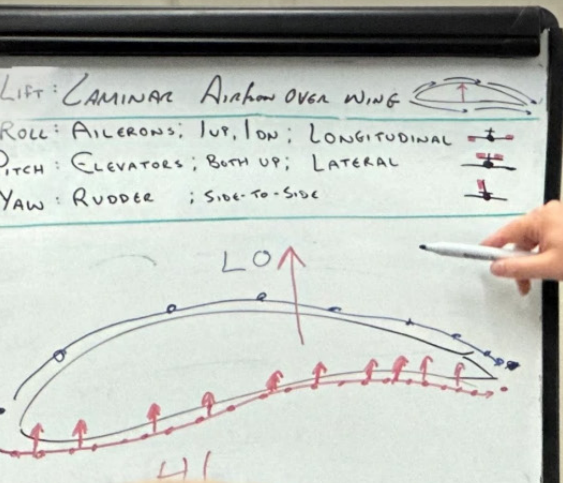 LIFT: LAMINAR AIRFLOW OVER WING
ROLL: AILERONS; 1UP, 1DN; LONGITUDINAL
PITCH: ELEVATORS; BOTH UP; LATERAL
YAW: RUDDER ; SIDE-TO-SIDE
LO
HI